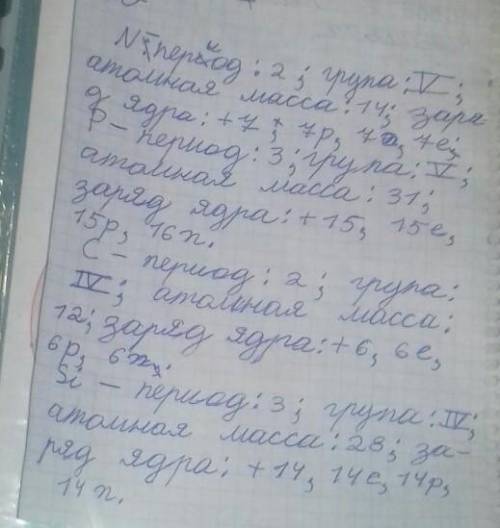 N - период: 2; група: V;
атомная масса: 14; заря
д ядра: +7; 7p, 7n, 7e;
P - период: 3; група: V;
атомная масса: 31;
заряд ядра: +15, 15e,
15p, 16n.
C - период: 2; група:
IV; атомная масса:
12; заряд ядра: +6, 6e,
6p, 6n.
Si - период: 3; група: IV;
атомная масса: 28; за-
ряд ядра: +14, 14e, 14p,
14n.